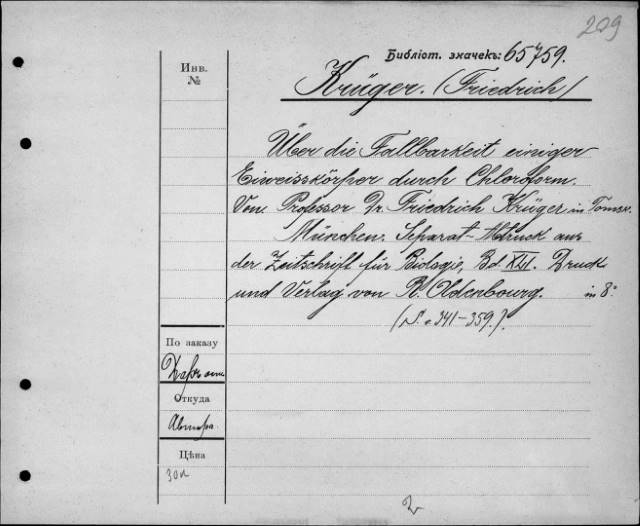 209
Библіот. значекъ: 65759.
Инв.
№
Krüger. (Friedrich)
Über die Fallbarkeit einiger
Eiweisskörper durch Chloroform.
Von Professor Dr. Friedrich Krüger in Tomsk.
München. Separat-Abdruck aus
der Zeitschrift für Biologie, Bd. XLI. Druck
und Verlag von R. Oldenbourg. in 8°
(S. 341-359.).
По заказу
Даръ отъ
Откуда
Автора
Цѣна
30к